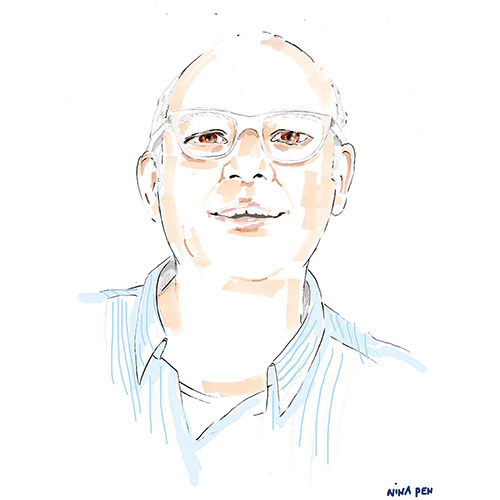 NINA PEN